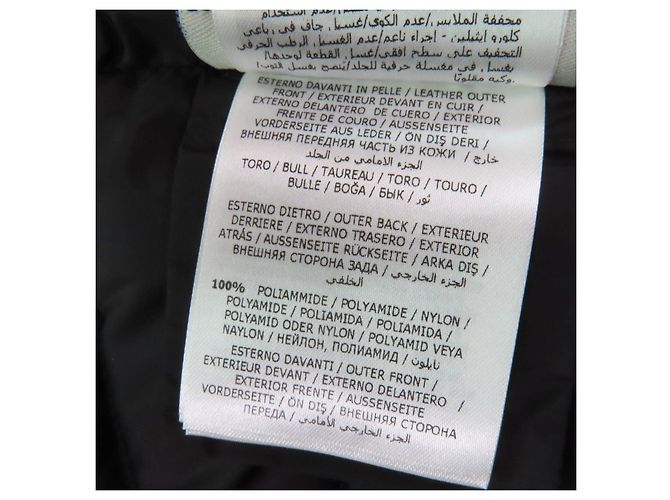 مجففة الملابس/عدم الكوي/غسيل جاف في رباعي
كلورو ايثيلين - إجراء ناعم/عدم الغسيل الرطب الحرفي
التجفيف على سطح افقي/غسل القطعة لوحدها/
يغسل في مغسلة حرفية للجلد/يُنصح بغسل الثوب/
وكيه مقلوبًا.
ESTERNO DAVANTI IN PELLE / LEATHER OUTER
FRONT / EXTERIEUR DEVANT EN CUIR /
EXTERNO DELANTERO DE CUERO / EXTERIOR
FRENTE DE COURO / AUSSENSEITE
VORDERSEITE AUS LEDER / ÖN DIŞ DERI /
ВНЕШНЯЯ ПЕРЕДНЯЯ ЧАСТЬ ИЗ КОЖИ / خارج
الجزء الامامي من الجلد
TORO / BULL / TAUREAU / TORO / TOURO /
BULLE / BOĞA / БЫК / ثور
ESTERNO DIETRO / OUTER BACK / EXTERIEUR
DERRIERE / EXTERNO TRASERO / EXTERIOR
ATRÁS / AUSSENSEITE RÜCKSEITE / ARKA DIŞ /
ВНЕШНЯЯ СТОРОНА ЗАДА / الجزء الخارجي
الخلفي
100% POLIAMMIDE / POLYAMIDE / NYLON /
POLYAMIDE / POLIAMIDA / POLIAMIDA /
POLYAMID ODER NYLON / POLYAMID VEYA
NAYLON / НЕЙЛОН, ПОЛИАМИД / نايلون
ESTERNO DAVANTI / OUTER FRONT /
EXTERIEUR DEVANT / EXTERNO DELANTERO /
EXTERIOR FRENTE / AUSSENSEITE
VORDERSEITE / ÖN DIŞ / ВНЕШНЯЯ СТОРОНА
ПЕРЕДА / الجزء الخارجي الأمامي